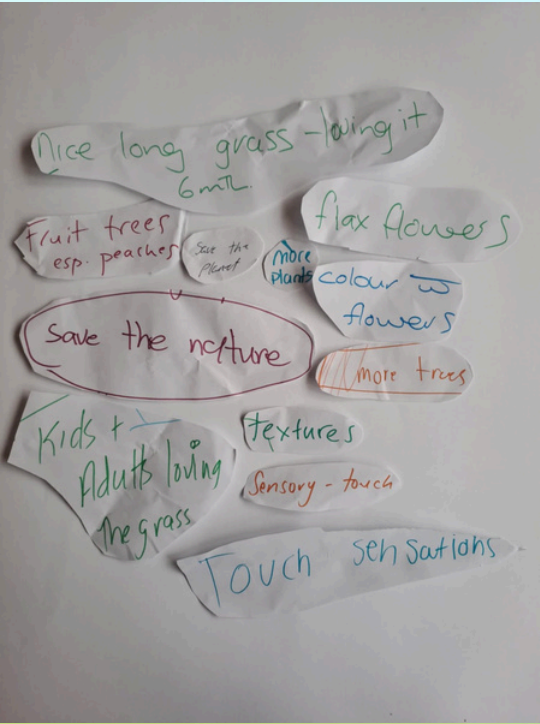 Nice long grass - loving it
6mth.
flax flowers
Fruit trees
esp. peaches
Save the
Planet
more
plants
colour w
flowers
Save the nature
more trees
Kids +
Adults loving
the grass
textures
Sensory - touch
Touch sensations